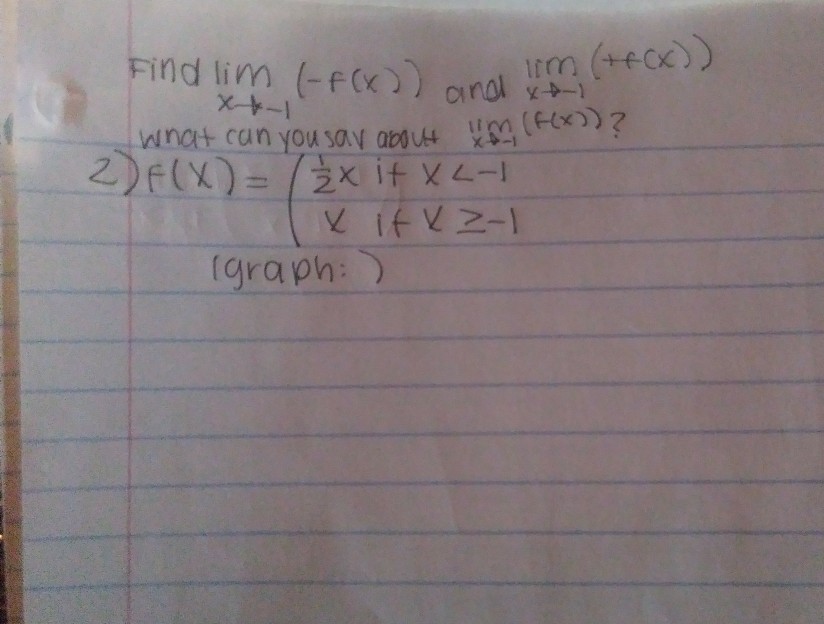 Find lim (-f(x)) and lim (+f(x))
x→-1 x→-1
what can you say about lim (f(x))?
x→-1
2) f(x) = { 1/2 x if x < -1
x if x ≥ -1
(graph: )